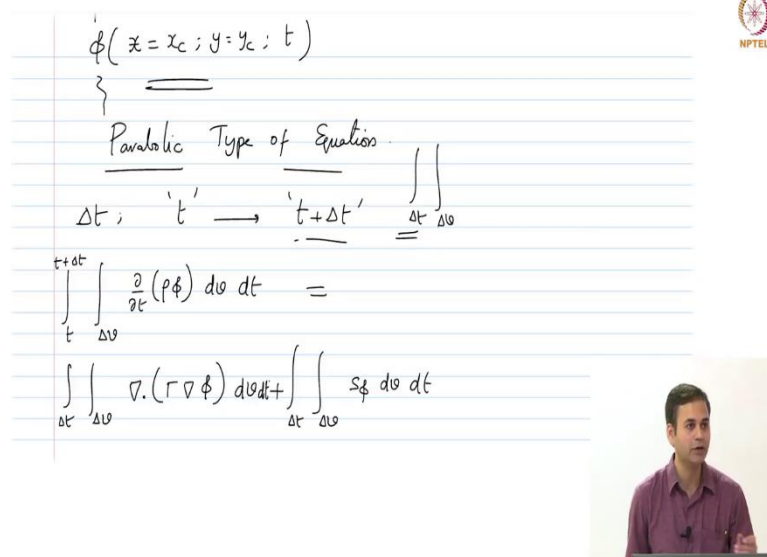 ϕ( x = x_c ; y = y_c ; t )
NPTEL
Parabolic Type of Equation.
Δt ; 't' ⟶ 't+Δt' ∫_Δt ∫_Δ𝒱
∫_t^{t+Δt} ∫_Δ𝒱 ∂/∂t (ρϕ) d𝒱 dt =
∫_Δt ∫_Δ𝒱 ∇.(Γ∇ϕ) d𝒱dt + ∫_Δt ∫_Δ𝒱 S_ϕ d𝒱 dt